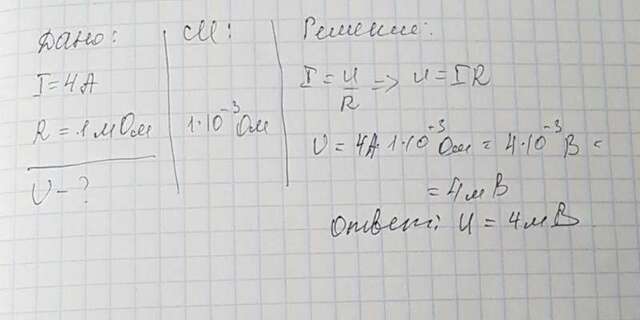 Дано:
I=4А
R=1мОм
U-?
СИ:
1·10⁻³Ом
Решение:
I=U/R=>U=IR
U=4А·1·10⁻³Ом=4·10⁻³В=
=4мВ
Ответ: U=4мВ